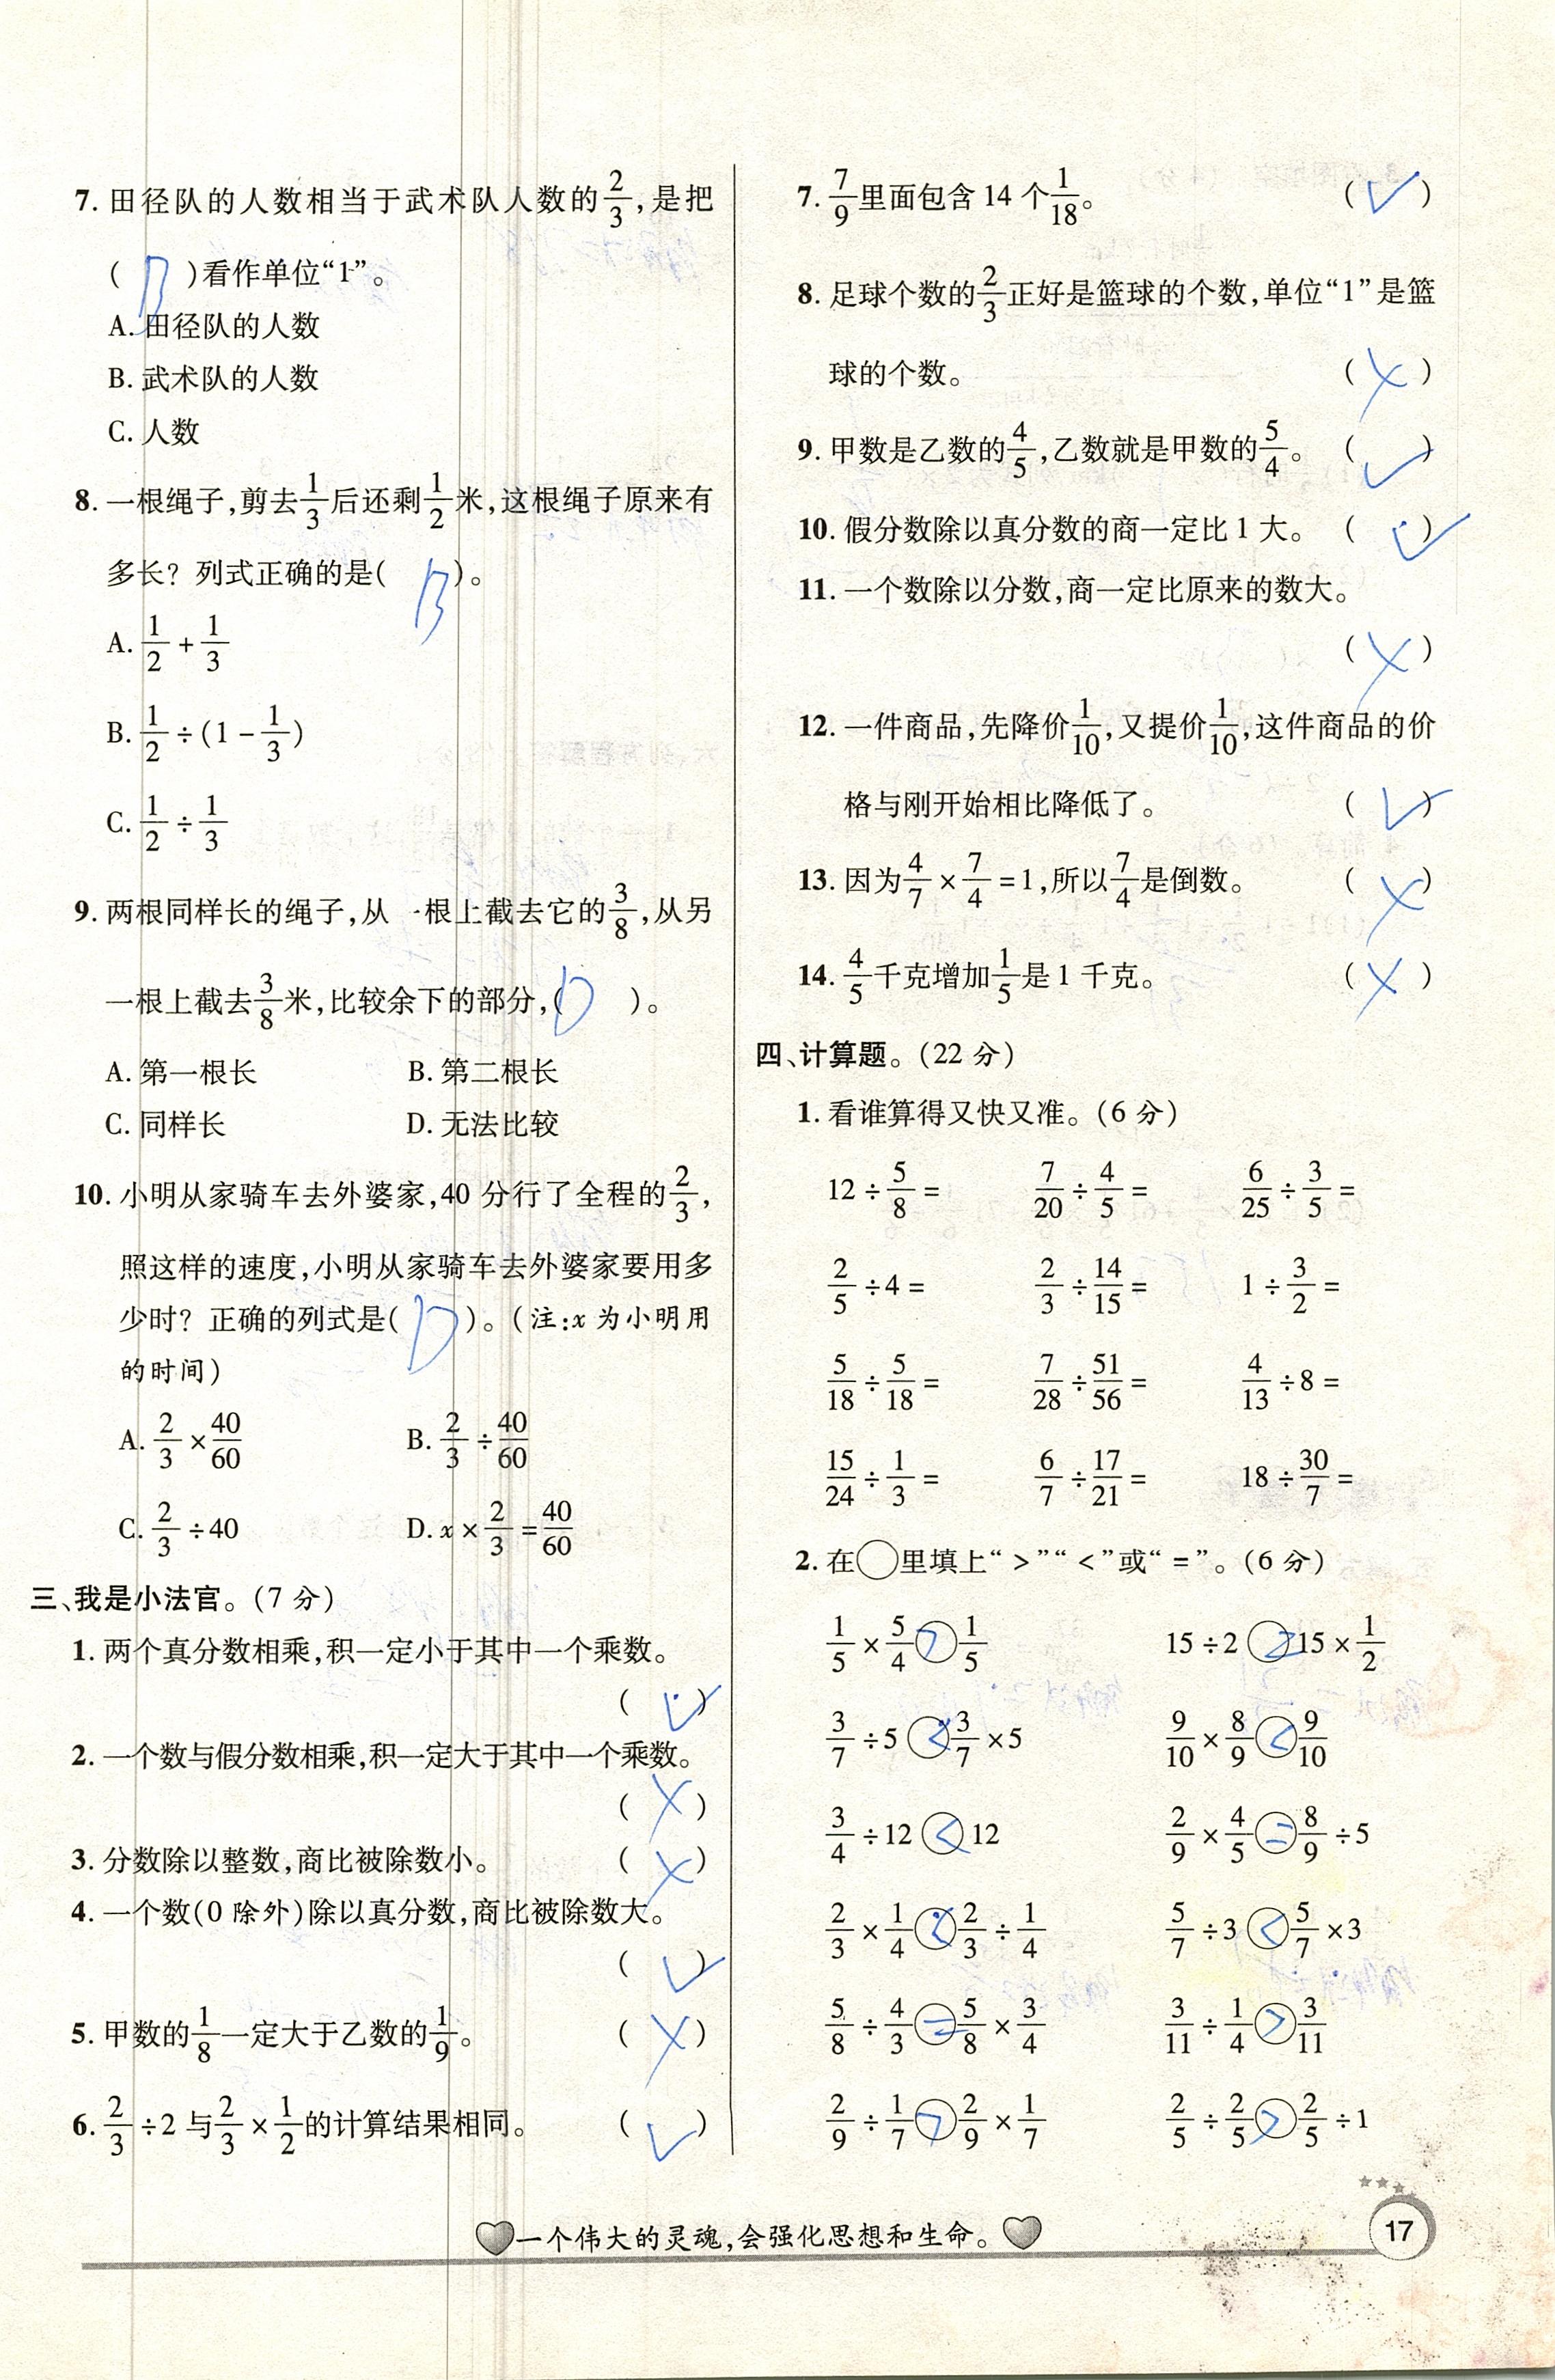 7. 田径队的人数相当于武术队人数的2/3,是把
( B )看作单位“1”。
A. 田径队的人数
B. 武术队的人数
C. 人数
8. 一根绳子,剪去1/3后还剩1/2米,这根绳子原来有
多长? 列式正确的是( B )。
A. 1/2 + 1/3
B. 1/2 ÷ (1 - 1/3)
C. 1/2 ÷ 1/3
9. 两根同样长的绳子,从一根上截去它的3/8,从另
一根上截去3/8米,比较余下的部分,( D )。
A. 第一根长 B. 第二根长
C. 同样长 D. 无法比较
10. 小明从家骑车去外婆家,40 分行了全程的2/3,
照这样的速度,小明从家骑车去外婆家要用多
少时? 正确的列式是( D )。(注:x 为小明用
的时间)
A. 2/3 × 40/60 B. 2/3 ÷ 40/60
C. 2/3 ÷ 40 D. x × 2/3 = 40/60
三、我是小法官。(7 分)
1. 两个真分数相乘,积一定小于其中一个乘数。
( ✓ )
2. 一个数与假分数相乘,积一定大于其中一个乘数。
( × )
3. 分数除以整数,商比被除数小。 ( × )
4. 一个数(0 除外)除以真分数,商比被除数大。
( ✓ )
5. 甲数的1/8一定大于乙数的1/9。 ( × )
6. 2/3 ÷ 2 与 2/3 × 1/2 的计算结果相同。 ( ✓ )
7. 7/9里面包含 14 个1/18。 ( ✓ )
8. 足球个数的2/3正好是篮球的个数,单位“1”是篮
球的个数。 ( × )
9. 甲数是乙数的4/5,乙数就是甲数的5/4。 ( ✓ )
10. 假分数除以真分数的商一定比 1 大。 ( ✓ )
11. 一个数除以分数,商一定比原来的数大。
( × )
12. 一件商品,先降价1/10,又提价1/10,这件商品的价
格与刚开始相比降低了。 ( ✓ )
13. 因为4/7 × 7/4 = 1,所以7/4是倒数。 ( × )
14. 4/5千克增加1/5是 1 千克。 ( × )
四、计算题。(22 分)
1. 看谁算得又快又准。(6 分)
12 ÷ 5/8 = 7/20 ÷ 4/5 = 6/25 ÷ 3/5 =
2/5 ÷ 4 = 2/3 ÷ 14/15 = 1 ÷ 3/2 =
5/18 ÷ 5/18 = 7/28 ÷ 51/56 = 4/13 ÷ 8 =
15/24 ÷ 1/3 = 6/7 ÷ 17/21 = 18 ÷ 30/7 =
2. 在○里填上“ > ”“ < ”或“ = ”。(6 分)
1/5 × 5/4 > 1/5 15 ÷ 2 = 15 × 1/2
3/7 ÷ 5 < 3/7 × 5 9/10 × 8/9 < 9/10
3/4 ÷ 12 < 12 2/9 × 4/5 = 8/9 ÷ 5
2/3 × 1/4 < 2/3 ÷ 1/4 5/7 ÷ 3 < 5/7 × 3
5/8 ÷ 4/3 = 5/8 × 3/4 3/11 ÷ 1/4 > 3/11
2/9 ÷ 1/7 > 2/9 × 1/7 2/5 ÷ 2/5 > 2/5 ÷ 1
一个伟大的灵魂,会强化思想和生命。
17